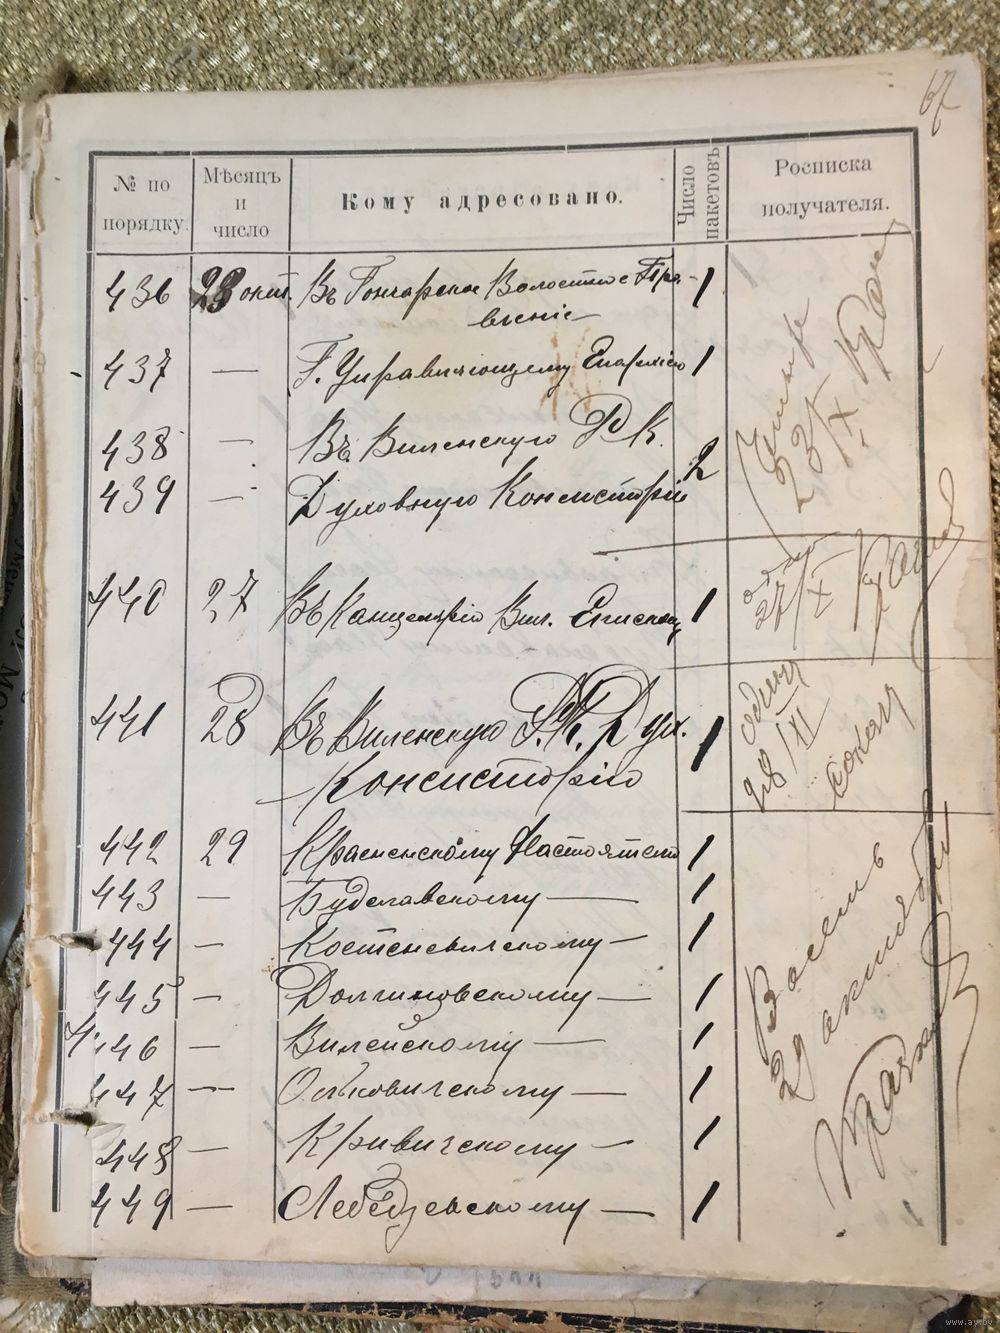 67
№ по порядку.
Мѣсяцъ и число
Кому адресовано.
Число пакетовъ
Росписка получателя.
436 23 окт. Въ Гончарское Волостное Пра- 1
вленіе
437 — Г. Управляющему Епархіею 1
438 — Въ Виленскую Р. К.
439 — Духовную Консисторію 2
23/X
440 27 Въ Канцелярію Вил. Епископа 1
27/X
441 28 Въ Виленскую Р. К. Дух. 1
Консисторію
один
28/XI
442 29 Красненскому Настоятелю 1
443 — Будславскому — 1
444 — Костеневичскому — 1
445 — Долгиновскому — 1
446 — Вилейскому — 1
447 — Ольковичскому — 1
448 — Кривичскому — 1
449 — Лебедзевскому — 1
Восемь
29 октября
www.ay.by